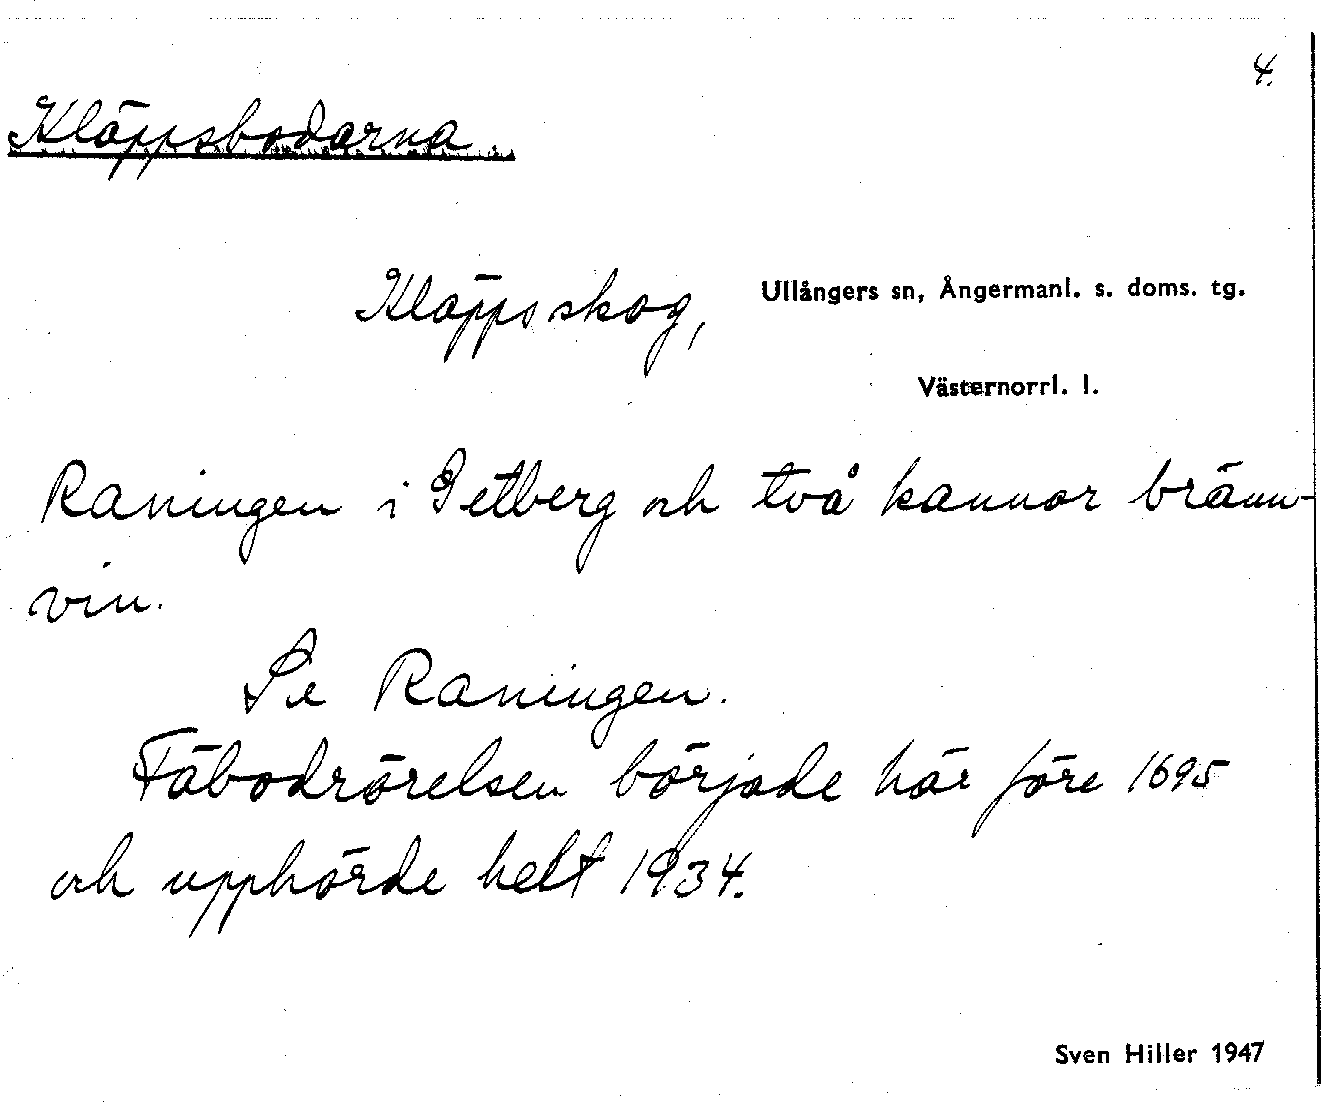 4.
Kläppsbodarna
Kläppsskog, Ullångers sn, Ångermanl. s. doms. tg.
Västernorrl. l.
Raningen i Getberg och två kannor bränn-
vin.
Se Raningen.
Fäbodrörelsen började här före 1695
och upphörde helt 1934.
Sven Hiller 1947